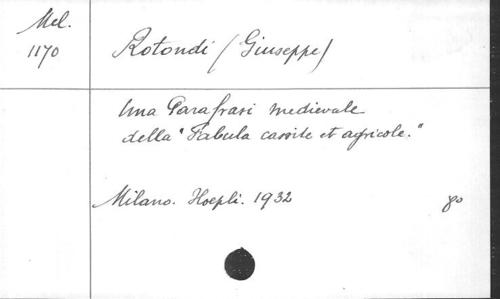 Mel.
1170
Rotondi (Giuseppe)
Una Parafrasi medievale
della "Fabula cassite et agricole."
Milano. Hoepli. 1932
8o